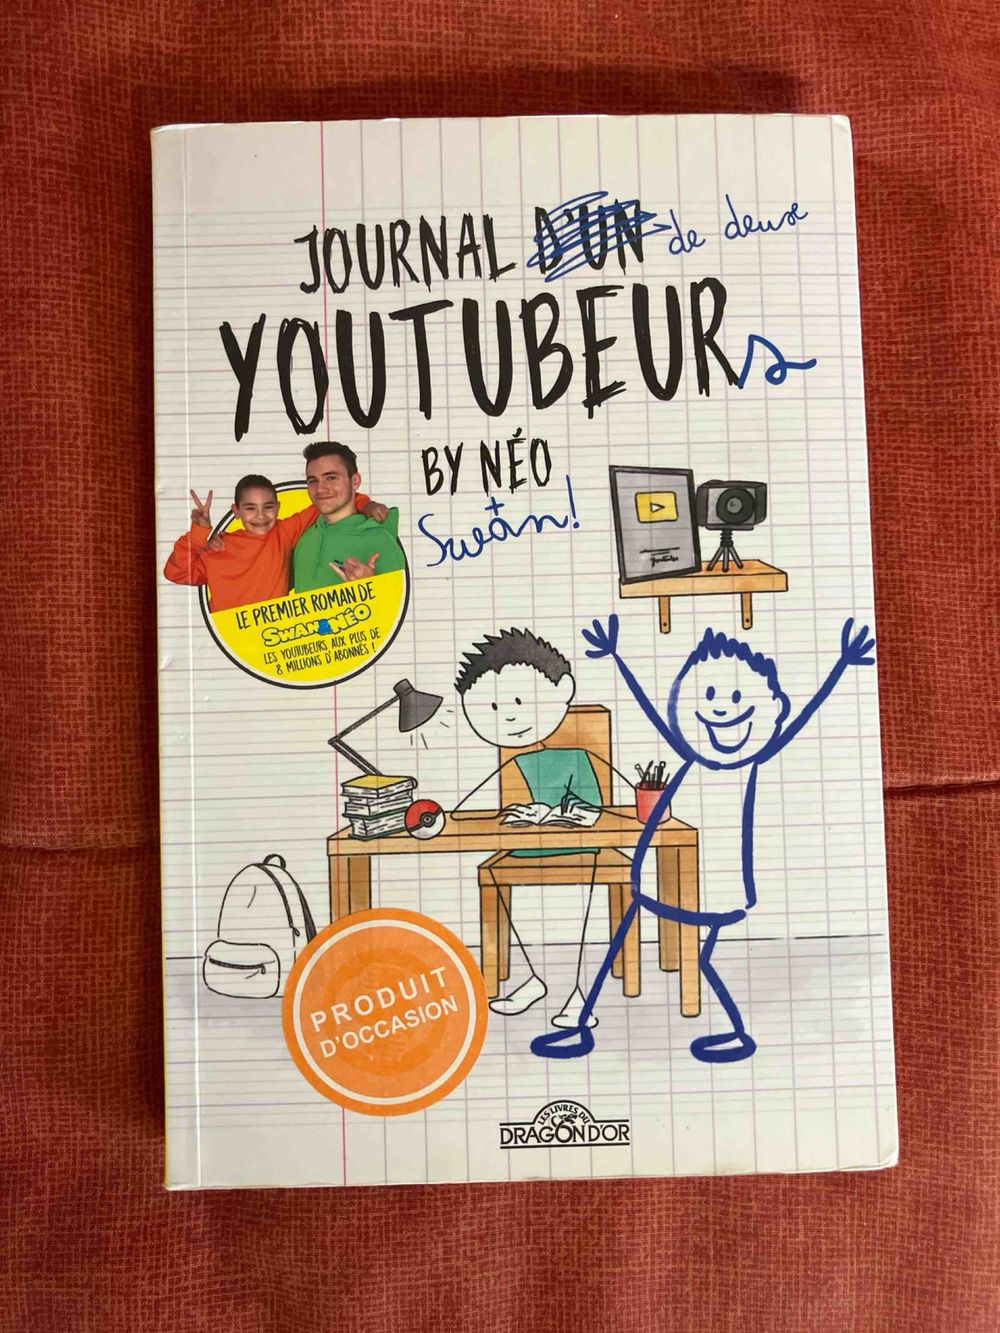 JOURNAL D'UN de deux
YOUTUBEURs
BY NÉO
+
Swan!
LE PREMIER ROMAN DE
SWAN & NÉO
LES YOUTUBEURS AUX PLUS DE
8 MILLIONS D'ABONNÉS !
PRODUIT
D'OCCASION
LES LIVRES DU
DRAGON D'OR